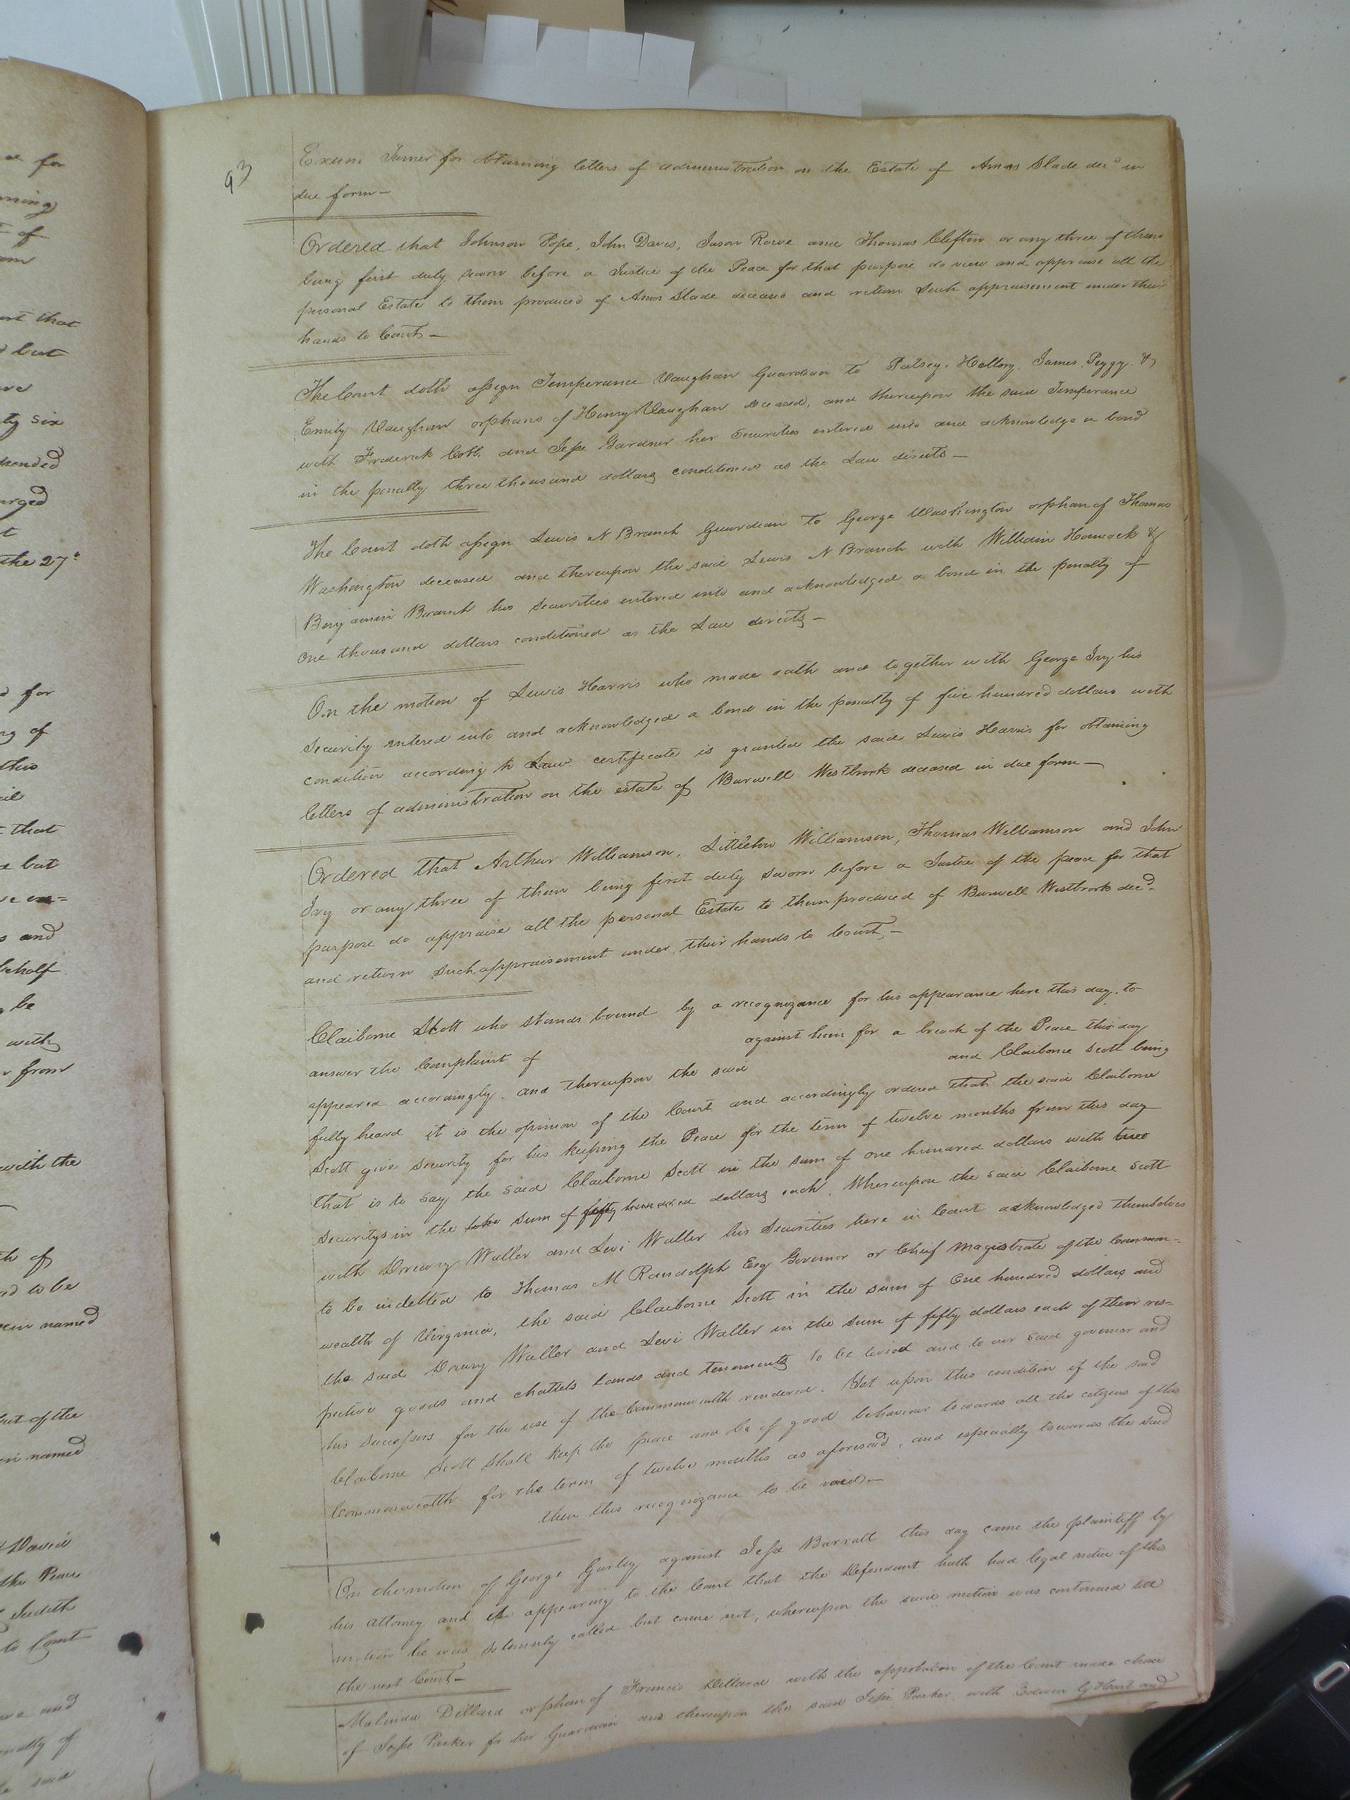 93
Exum Turner for obtaining letters of administration on the Estate of Amos Slade decd in
due form —
Ordered that Johnson Pope, John Davis, Jason Rowe and Thomas Clifton or any three of them
being first duly sworn before a Justice of the Peace for that purpose do view and appraise all the
personal Estate to them produced of Amos Slade deceased and return such appraisement under their
hands to Court —
The Court doth assign Temperance Vaughan Guardian to Patsey, James, Peggy &
Emily Vaughan orphans of Henry Vaughan deceased, and thereupon the said Temperance
with Frederick Cobb, and Jesse Gardner her Securities entered into and acknowledge a bond
in the penalty three thousand dollars conditioned as the Law directs —
The Court doth assign Lewis N Branch Guardian to George Washington orphan of Thomas
Washington deceased and thereupon the said Lewis N Branch with William Hancock &
Benjamin Branch his Securities entered into and acknowledged a bond in the penalty of
One thousand dollars conditioned as the Law directs —
On the motion of Lewis Harris who made oath and together with George Ivy his
Security entered into and acknowledged a bond in the penalty of five hundred dollars with
condition according to Law certificate is granted the said Lewis Harris for obtaining
letters of administration on the estate of Burwell Westbrook deceased in due form —
Ordered that Arthur Williamson, Littleton Williamson, Thomas Williamson and John
Ivy or any three of them being first duly sworn before a Justice of the peace for that
purpose do appraise all the personal Estate to them produced of Burwell Westbrook decd.
and return such appraisement under their hands to Court —
Claiborne Scott who stands bound by a recognizance for his appearance here this day, to
answer the Complaint of against him for a breach of the Peace this day
appeared accordingly, and thereupon the said and Claiborne Scott being
fully heard it is the opinion of the Court and accordingly ordered that the said Claiborne
Scott give Security for his keeping the Peace for the term of twelve months from this day
that is to say the said Claiborne Scott in the sum of one hundred dollars with two
securitys in the sum of fifty dollars each. Whereupon the said Claiborne Scott
with Drewry Waller and Levi Waller his Securities here in Court acknowledged themselves
to be indebted to Thomas M Randolph Esq Governor or Chief Magistrate of the Common=
wealth of Virginia, the said Claiborne Scott in the sum of One hundred dollars and
the said Drewry Waller and Levi Waller in the sum of fifty dollars each of their res=
pective goods and chattels Lands and tenements to be levied and to our said governor and
his Successors for the use of the Commonwealth rendered. Yet upon this condition if the said
Claiborne Scott shall keep the peace and be of good behaviour towards all the citizens of this
Commonwealth for the term of twelve months as aforesaid, and especially towards the said
then this recognizance to be void —
On the motion of George Gurley against Jesse Barrett this day came the plaintiff by
his attorney and it appearing to the Court that the Defendant hath had legal notice of this
motion he was solemnly called but came not, whereupon the said motion was continued till
the next Court —
Malinda Dillard orphan of Francis Dillard with the approbation of the Court made choice
of Jesse Parker for her Guardian and thereupon the said Jesse Parker, with Edwin G Hart and